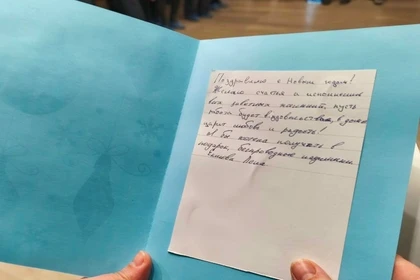 Поздравляю с Новым годом!
Желаю счастья и исполнения
всех заветных желаний, пусть
работа будет в удовольствие, а дома
царит любовь и радость!
Я бы хотела получить в
подарок, беспроводные наушники
Лена